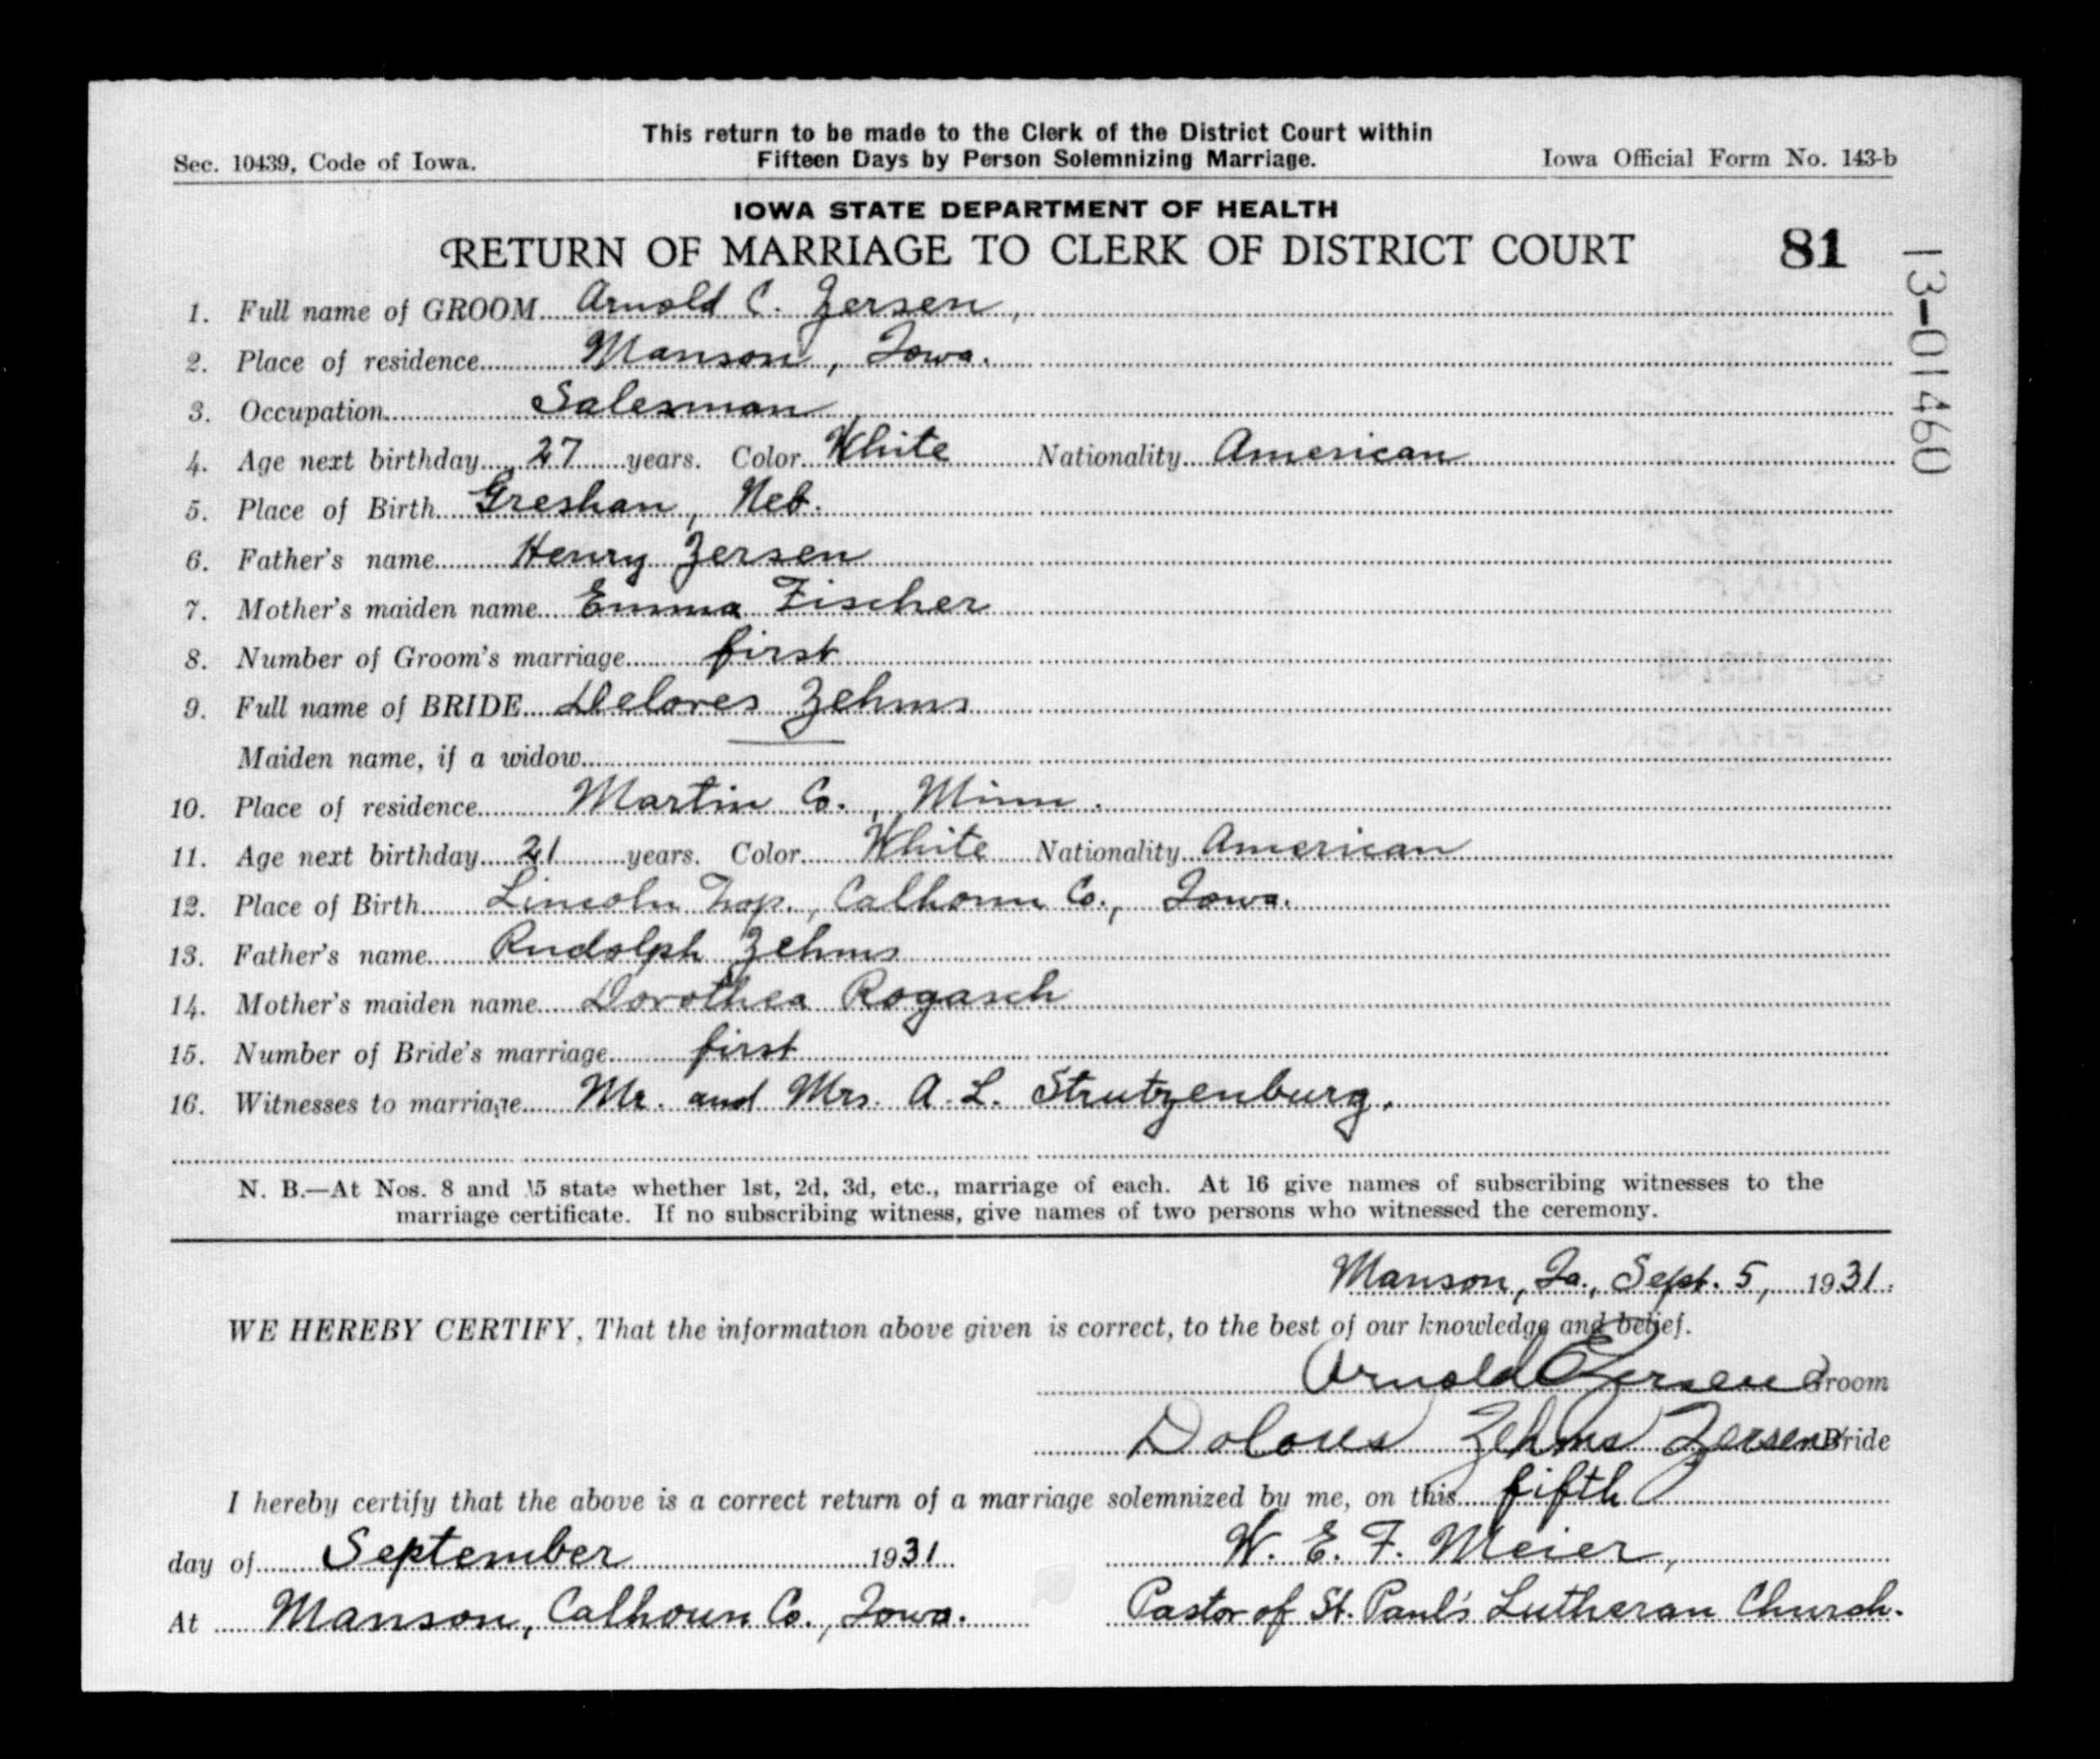 This return to be made to the Clerk of the District Court within
Sec. 10439, Code of Iowa. Fifteen Days by Person Solemnizing Marriage. Iowa Official Form No. 143-b
IOWA STATE DEPARTMENT OF HEALTH
RETURN OF MARRIAGE TO CLERK OF DISTRICT COURT 81
13-01460
1. Full name of GROOM Arnold C. Zersen,
2. Place of residence Manson, Iowa.
3. Occupation Salesman
4. Age next birthday 27 years. Color White Nationality American
5. Place of Birth Greshan, Neb.
6. Father's name Henry Zersen
7. Mother's maiden name Emma Fischer
8. Number of Groom's marriage first
9. Full name of BRIDE Delores Zehms
Maiden name, if a widow
10. Place of residence Martin Co., Minn.
11. Age next birthday 21 years. Color White Nationality American
12. Place of Birth Lincoln Twp., Calhoun Co., Iowa.
13. Father's name Rudolph Zehms
14. Mother's maiden name Dorothea Rogasch
15. Number of Bride's marriage first
16. Witnesses to marriage Mr. and Mrs. A. L. Strutzenburg.
N. B.—At Nos. 8 and 15 state whether 1st, 2d, 3d, etc., marriage of each. At 16 give names of subscribing witnesses to the
marriage certificate. If no subscribing witness, give names of two persons who witnessed the ceremony.
Manson, Ia., Sept. 5, 1931.
WE HEREBY CERTIFY, That the information above given is correct, to the best of our knowledge and belief.
Arnold C Zersen Groom
Dolores Zehms Zersen Bride
I hereby certify that the above is a correct return of a marriage solemnized by me, on this fifth
day of September 1931. W. E. F. Meier,
At Manson, Calhoun Co., Iowa. Pastor of St. Paul's Lutheran Church.